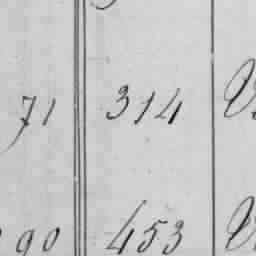 71 314
90 453